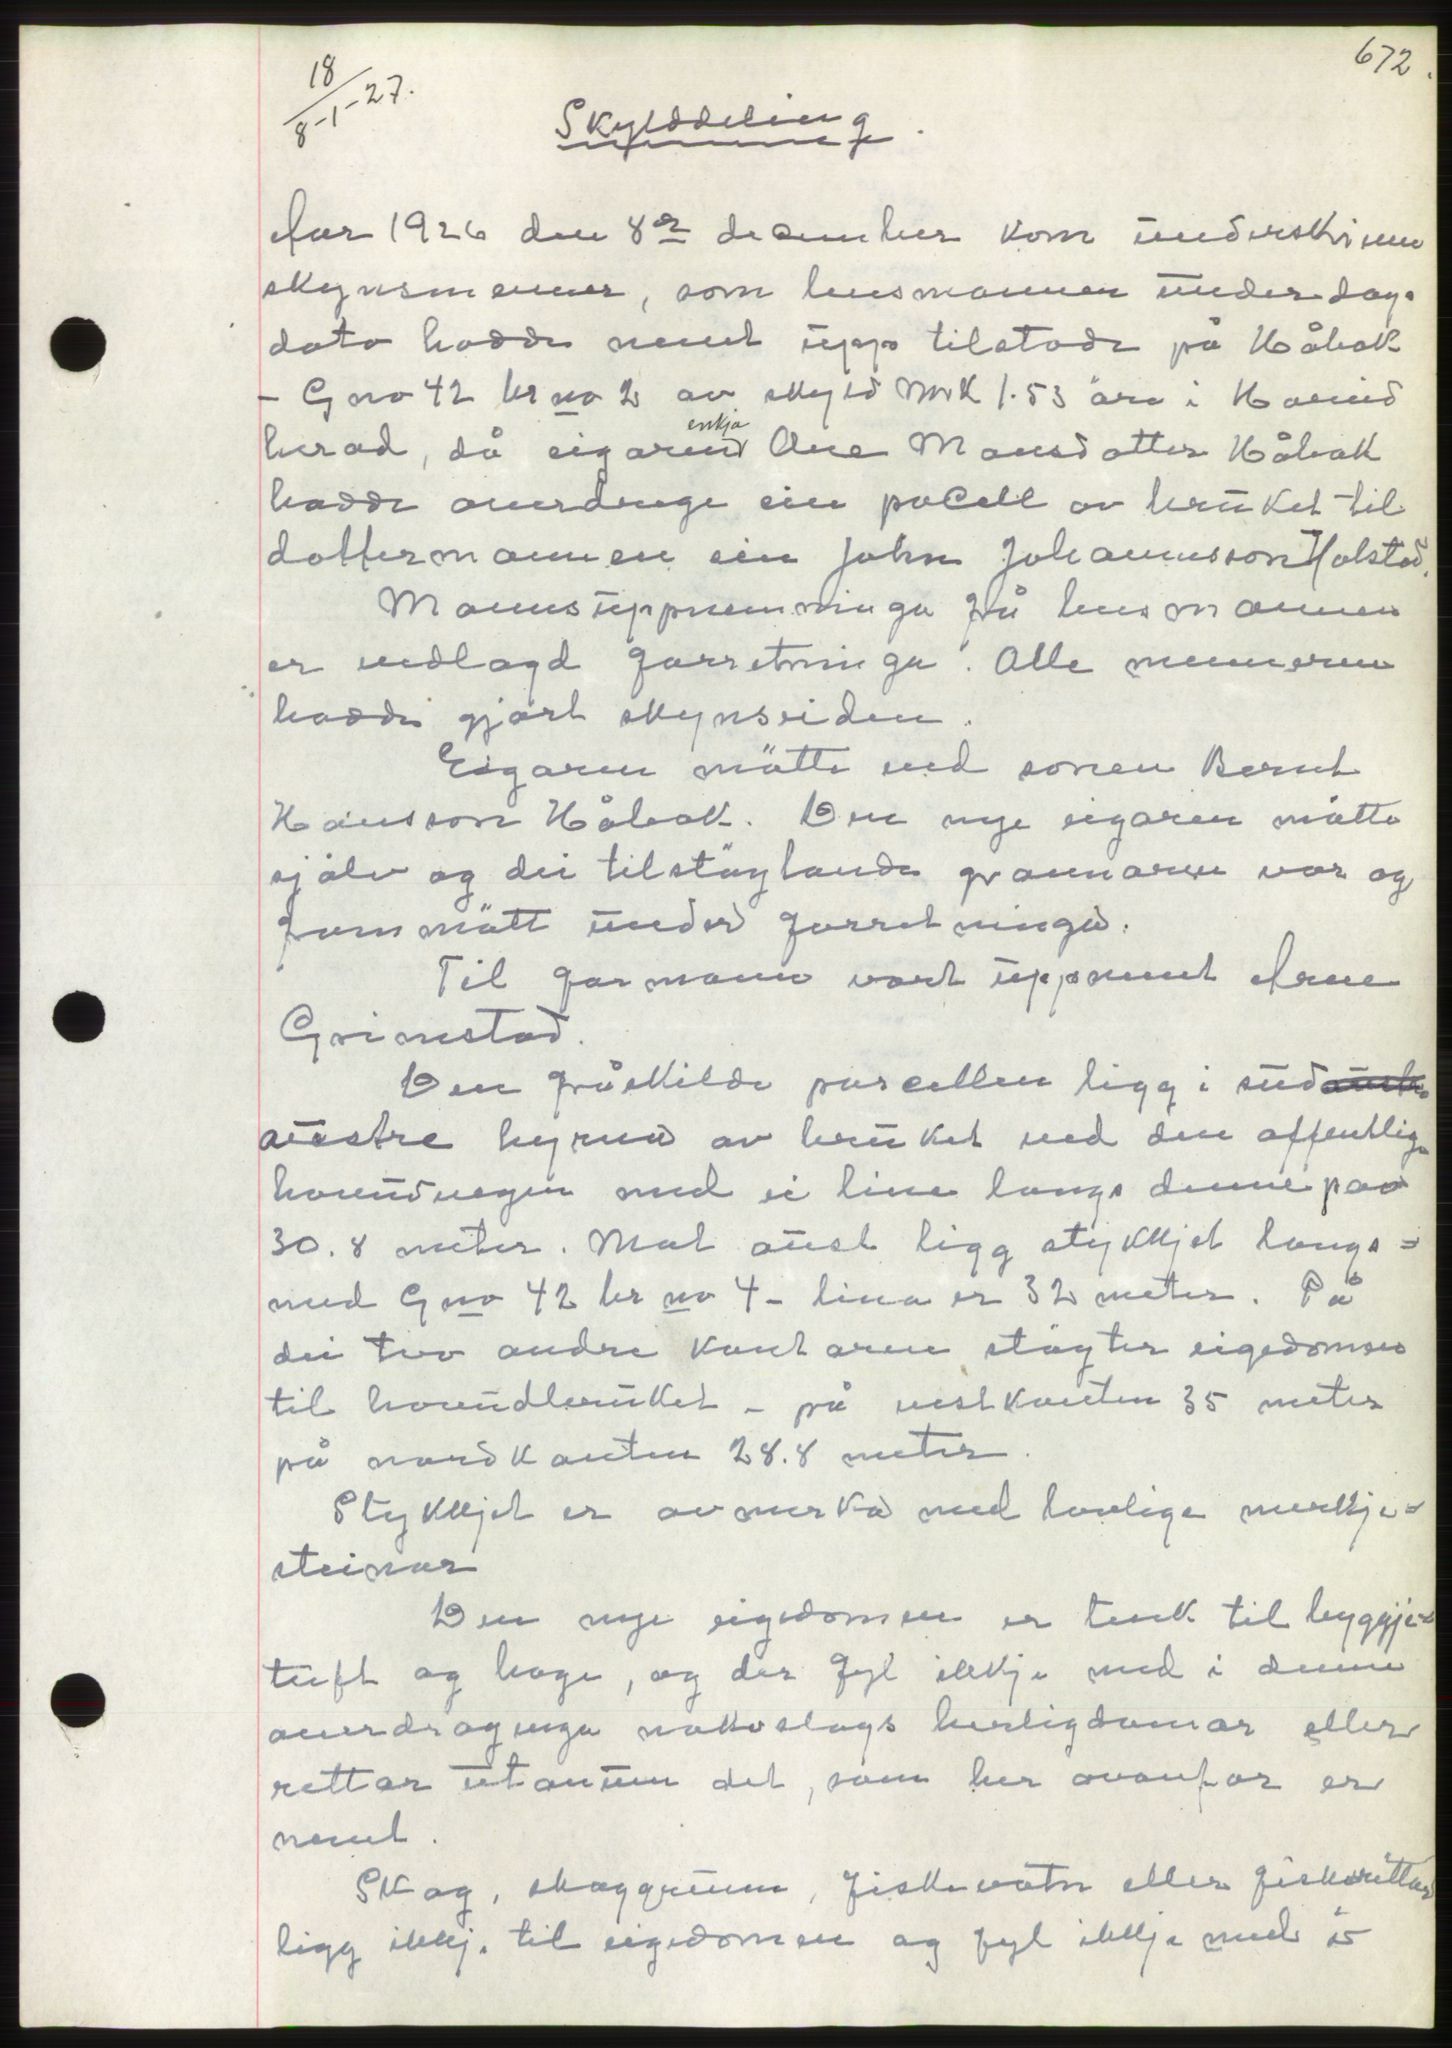 672.
18
8-1-27.
Skylddeling.
Aar 1926 den 8de desember kom underskrivne
skynsmenner, som lensmannen under dags
dato hadde nemt upp tilstade på Håbak
- G no 42 br no 2 av skyld Mrk 1.53 øre i Hareid
herad, då eigaren enkja Ane Mansdotter Håbak
hadde overdrege ein pacell av bruket til
dottermannen ein John Johannesson Holstad.
Mannsuppnemninga frå lensmannen
er vedlagd forretninga. Alle mennerne
hadde gjort skynseiden.
Eigaren møtte ved sonen Bernt
Hansson Håbak. Den nye eigaren møtte
sjølv og dei tilstøytande grannarne var og
frammøtt under forretninga.
Til formann vart uppnemt Arne
Grimstad.
Den fråskilde parcellen ligg i sud
austre hyrna av bruket ved den offentlige
hovudvegen med ei line langs denne paa
30.8 meter. Mot aust ligg stykkjet langs=
med G no 42 br no 4 - lina er 32 meter. På
dei two andre kantarne støyter eigedomen
til hovudbruket - på vestkanten 35 meter
på nordkanten 28.8 meter.
Stykkjet er avmerka med lovlige merkje=
steinar
Den nye eigedomen er tenk til byggje=
tuft og hage, og der fyl ikkje med i denne
overdraginga nokoslags herligdomar eller
rettar utanum det, som her ovanfor er
nemt.
Skog, skoggrunn, fiskevatn eller fiskerettar
ligg ikkje til eigedomen og fyl ikkje med i